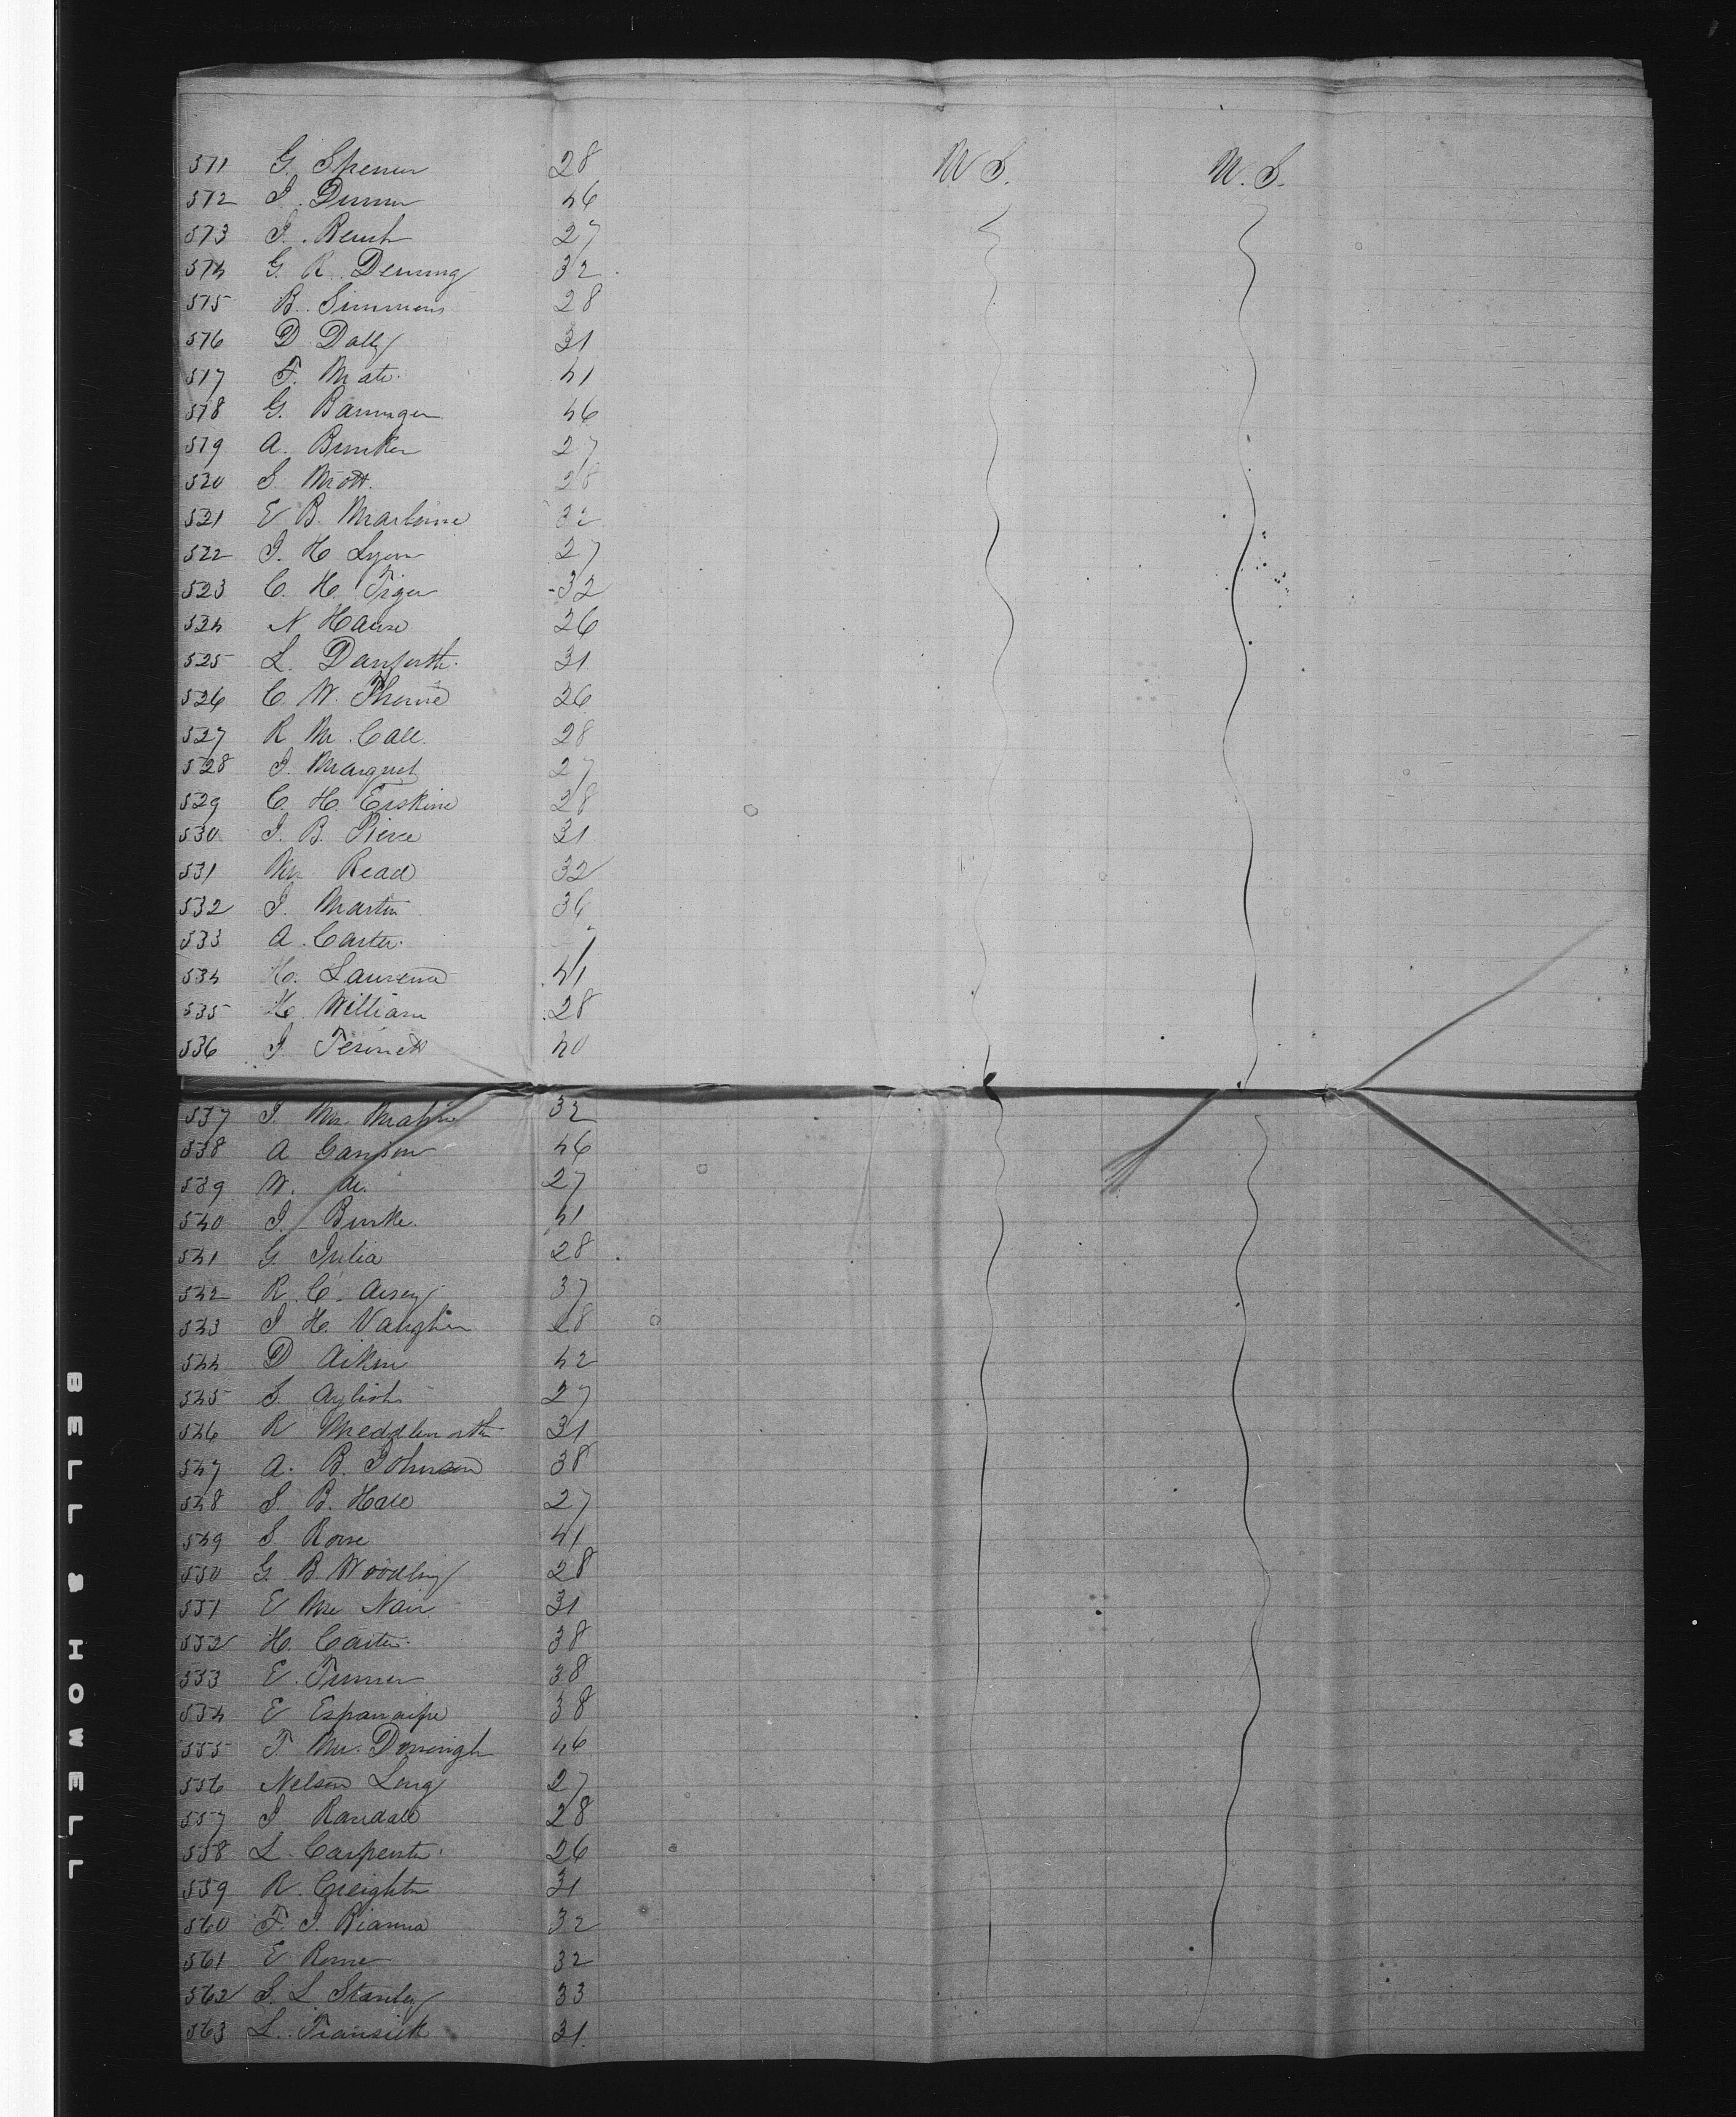 511 G. Spencer 28 U S. U. S.
512 J. Durran 46
513 J. Reush 27
514 G. R. Deming 32
515 B. Simmons 28
516 D. Dally 31
517 F. Mate. 41
518 G. Barringer 46
519 A. Bunker 27
520 S. Mott. 28
521 E B. 32
522 J. H. Lyon 27
523 C. H. Tiger 32
524 N Hause 26
525 L. Danforth. 31
526 C. W. Thorne 26
527 R Mc. Call. 28
528 J. Marquet 27
529 C. H. Erskine 28
530 J. B. Pierce 31
531 Mr. Read 32
532 J. Martin 36
533 A. Carter.
534 H. Laurence 41
535 H. William 28
536 J. 40
537 J. Mc 32
538 A Garrison 46
539 W. do. 27
540 J. Burke. 41
541 G. Julia 28
542 R. C. Airey 37
543 J. H. Vaughn 28
544 D Aikin 42
545 S. 27
546 R Meddlenorth 31
547 A. B. Johnson 38
548 S. B. Hall 27
549 S Rowe 41
550 G. B. Woodling 28
551 E Mc Nair 31
552 H. Carter. 38
553 E. Turner 38
554 E 38
555 T. Mc. 46
556 Nelson Long 27
557 J Randall 28
558 L. Carpenter. 26
559 R. Creighton 31
560 F. J. Rianna 32
561 E Rome 32
562 S. L. Stanley 33
563 L. 31.
BELL & HOWELL